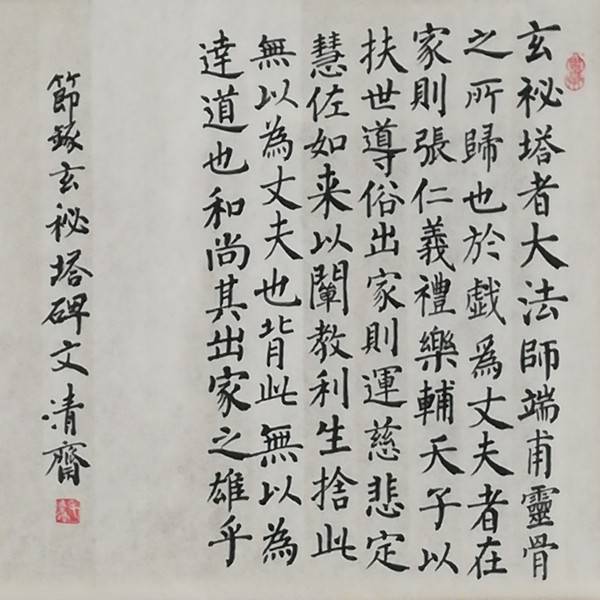 玄祕塔者大法師端甫靈骨
之所歸也於戯為丈夫者在
家則張仁義禮樂輔天子以
扶世導俗出家則運慈悲定
慧佐如来以闡教利生捨此
無以為丈夫也背此無以為
達道也和尚其出家之雄乎
節錄玄祕塔碑文清齋